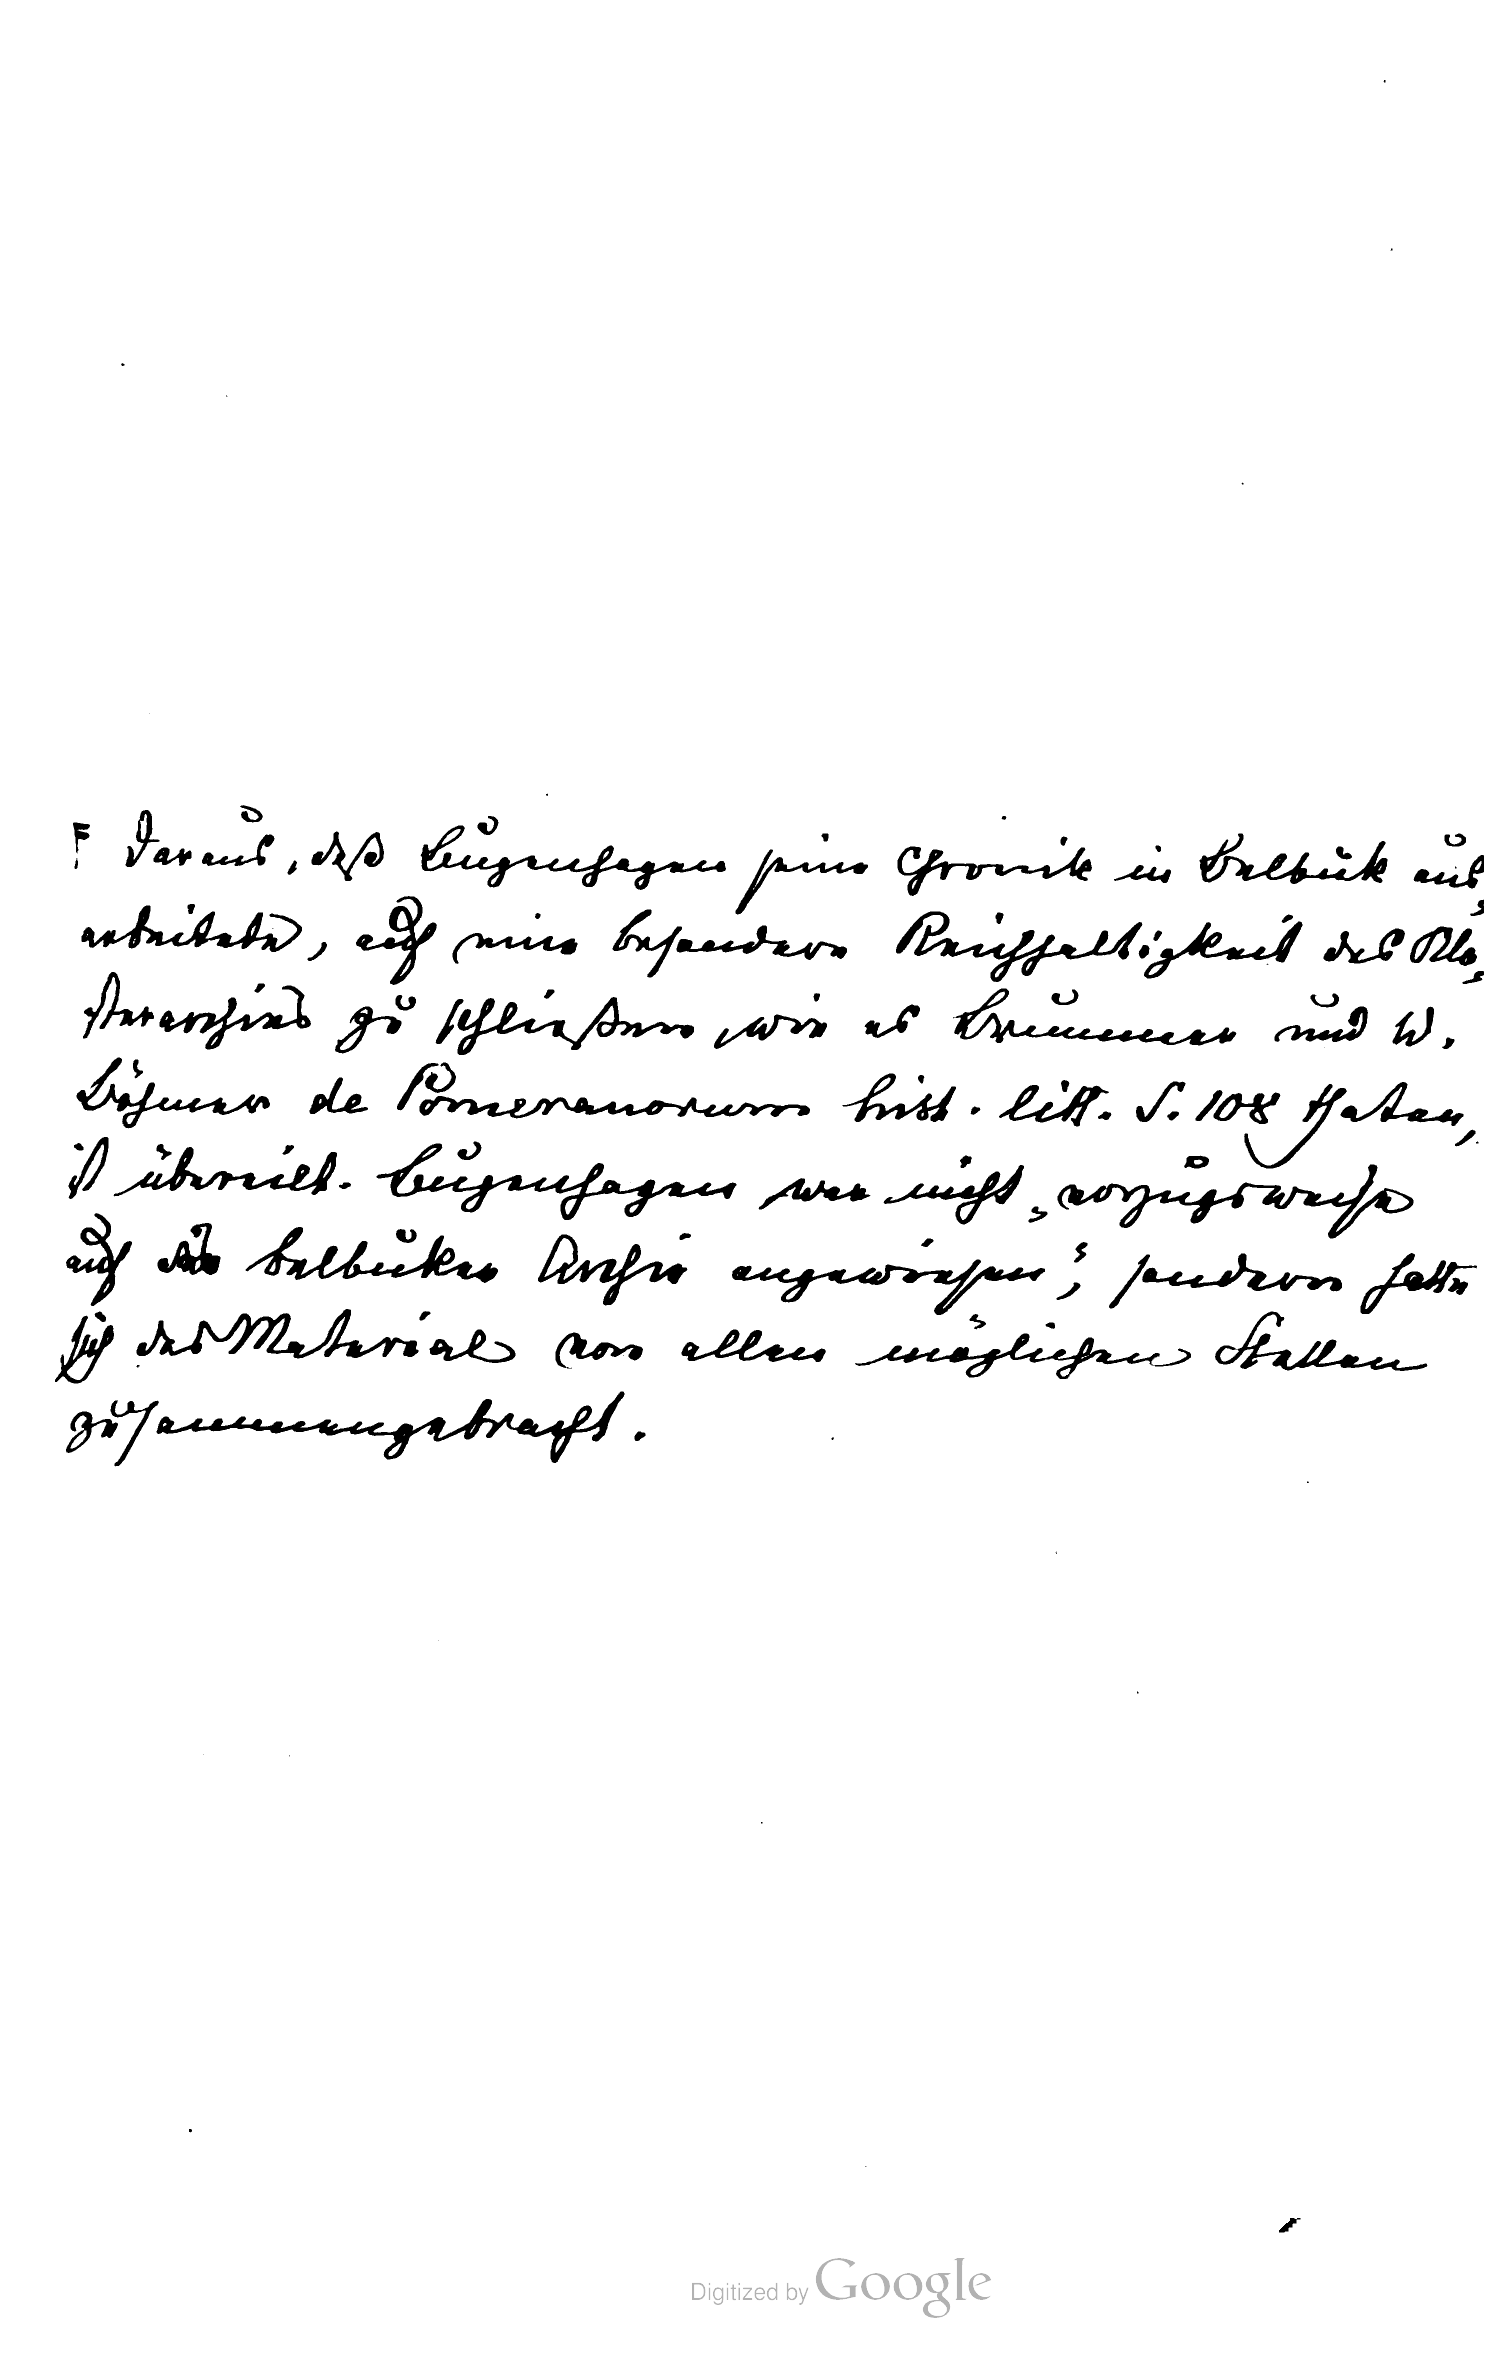 F Daraus, daß Bugenhagen seine Chronik in Belbuk aus-
arbeitete, auf eine besondere Reichhaltigkeit des Klo-
sterarchivs zu schließen, wie es Brummer und W.
Böhmer de Pomeranorum hist. litt. S. 108 thaten,
ist übereilt. Bugenhagen war nicht „vorzugsweise
auf das Belbuker Archiv angewiesen“, sondern hatte
sich das Material von allen möglichen Stellen
zusammengebracht.
Digitized by Google